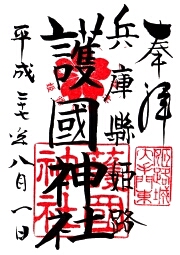 奉拝
姫路城
大手門東
兵庫縣姫路
護國神社
平成二十七年八月一日